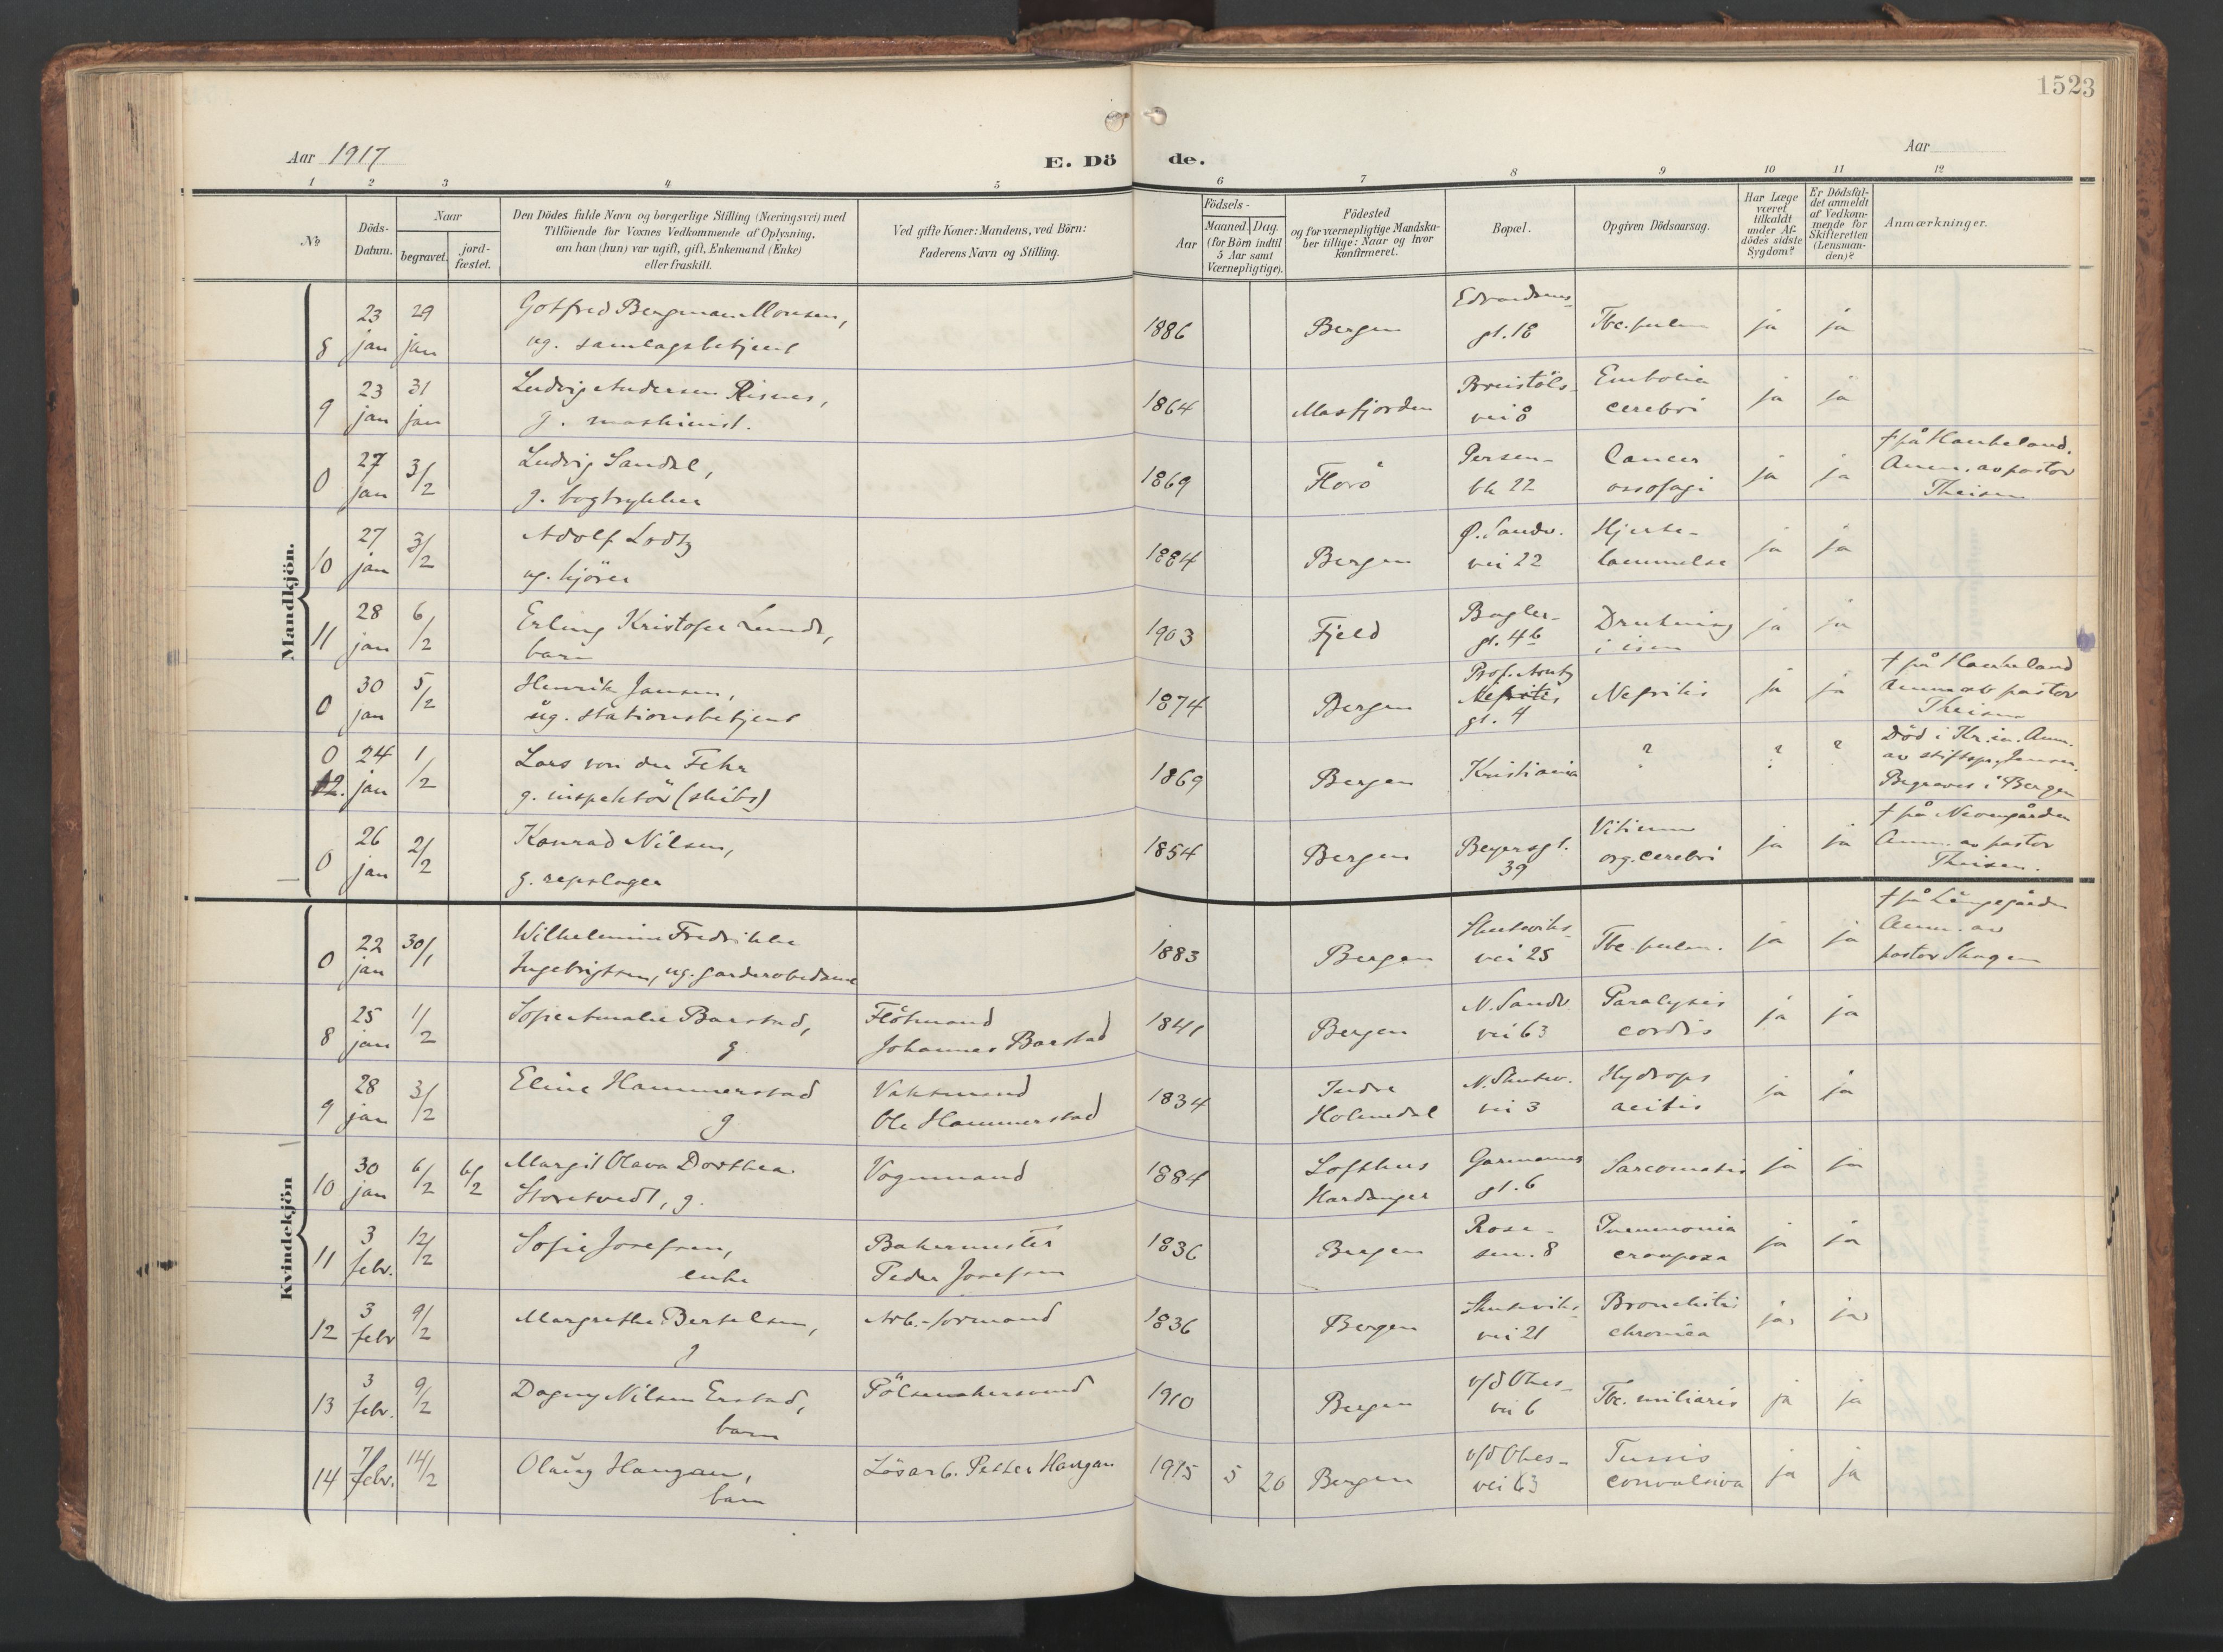 1523
Aar 1917
E. Döde.
Aar
1 2 3 4 5 6 7 8 9 10 11 12
№
Döds-Datum.
Naar
begravet.
jord-fæstet.
Den Dödes fulde Navn og borgerlige Stilling (Næringsvei) med
Tilföiende for Voxnes Vedkommende af Oplysning,
om han (hun) var ugift, gift, Enkemand (Enke)
eller fraskilt.
Ved gifte Koner: Mandens, ved Börn:
Faderens Navn og Stilling.
Födsels-
Aar
Maaned Dag
(for Börn indtil
5 Aar samt
Værnepligtige).
Födested
og for værnepligtige Mandska-
ber tillige: Naar og hvor
konfirmeret.
Bopæl.
Opgiven Dödsaarsag.
Har Læge
været
tilkaldt
under Af-
dödes sidste
Sygdom?
Er Dödsfal-
det anmeldt
af Vedkom-
mende for
Skifteretten
(Lensman-
den)?
Anmærkninger.
Mandkjön.
8 23 jan 29 jan Gotfred Bergman Monsen,
ug. samlagsbetjent 1886 Bergen Edvardsens-
gt. 18 Tbc. pulm ja ja
9 23 jan 31 jan Ludvig Andersen Risnes,
g. maskinist. 1864 Masfjorden Breistöls-
vei 8 Embolia
cerebri ja ja
0 27 jan 3/2 Ludvig Sandal,
g. bogtrykker 1869 Florö Persen-
bk 22 Cancer
oesofagi ja ja † på Haukeland.
Anm. av pastor
Theisen
10 27 jan 3/2 Adolf Lodtz
ug. kjörer 1884 Bergen Ø. Sandv.
vei 22 Hjerte-
lammelse ja ja
11 28 jan 6/2 Erling Kristofer Lunde,
barn 1903 Fjeld Bagler-
gt. 4b Drukning
i isen ja ja
0 30 jan 5/2 Henrik Jansen,
ug. stationsbetjent 1874 Bergen Prof. Arentz
Nefritis
gt. 4 Nefritis ja ja † på Haukeland
Anm av pastor
Theisen
0 12. 24 jan 1/2 Lars von der Fehr
g. inspektör (skibs) 1869 Bergen Kristiania ? ? ? Död i Kr.ia. Anm.
av stiftspr. Jensen.
Begraves i Bergen
0 26 jan 2/2 Konrad Nilsen,
g. repslager 1854 Bergen Beyersgt.
39 Vitium
org. cerebri ja ja † på Neevengården
Anm. av pastor
Theisen.
Kvindekjön
0 22 jan 30/1 Wilhelmine Fredrikke
Ingebrigtsen, ug. garderobedame 1883 Bergen Skuteviks-
vei 25 Tbc. pulm. ja ja † på Lungegården
Anm. av
pastor Skagen
8 25 jan 1/2 Sofie Amalie Barstad,
g Flötmand
Johannes Barstad 1841 Bergen N. Sandv.
vei 63 Paralysis
cordis ja ja
9 28 jan 3/2 Eline Hammerstad
g Vaktmand
Ole Hammerstad 1834 Indre
Holmedal N. Skutev.
vei 3 Hydrops
acitis ja ja
10 30 jan 6/2 6/2 Margit Olava Dorthea
Storetvedt, g. Vognmand 1884 Lofthus
Hardanger Garmanns
gt. 6 Sarcomatis ja ja
11 3 febr. 12/2 Sofie Josefsen,
enke Bakermester
Peder Josefsen 1836 Bergen Rose-
sm. 8 Pneumonia
crouposa ja ja
12 3 febr 9/2 Margrethe Bertelsen,
g Arb.-formand 1836 Bergen Skuteviks-
vei 21 Bronchitis
chronica ja ja
13 3 febr. 9/2 Dagny Nilsen Erstad,
barn Pölsemakersvend 1910 Bergen v/d Ohes-
vei 6 Tbc. miliaris ja ja
14 7/febr. 14/2 Olaug Haugan,
barn Lösarb. Petter Haugan 1915 5 20 Bergen v/d Ohes-
vei 63 Tussis
convulsiva ja ja